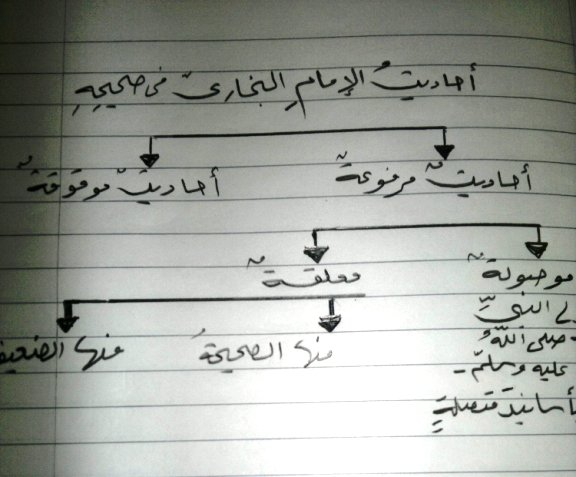 أحاديثُ الإمامِ البخاريّ في صحيحِهِ
أحاديثٌ مرفوعةٌ أحاديثٌ موقوفةٌ
موصولةٌ معلقةٌ
النبيِّ
صلى اللهُ
عليه وسلم -
بأسانيدَ متصلةٍ
منها الصحيحةُ منها